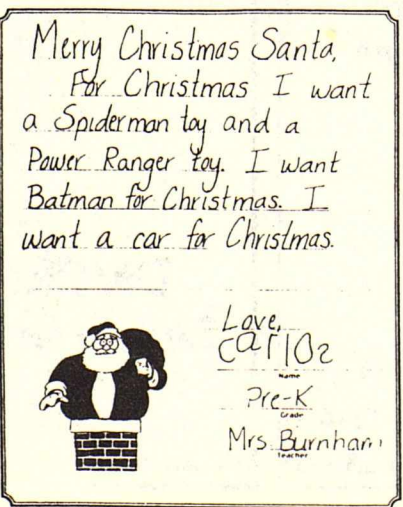 Merry Christmas Santa,
For Christmas I want
a Spiderman toy and a
Power Ranger toy. I want
Batman for Christmas. I
want a car for Christmas.
Love,
carlos
Name
Pre-K
Grade
Mrs. Burnham
Teacher